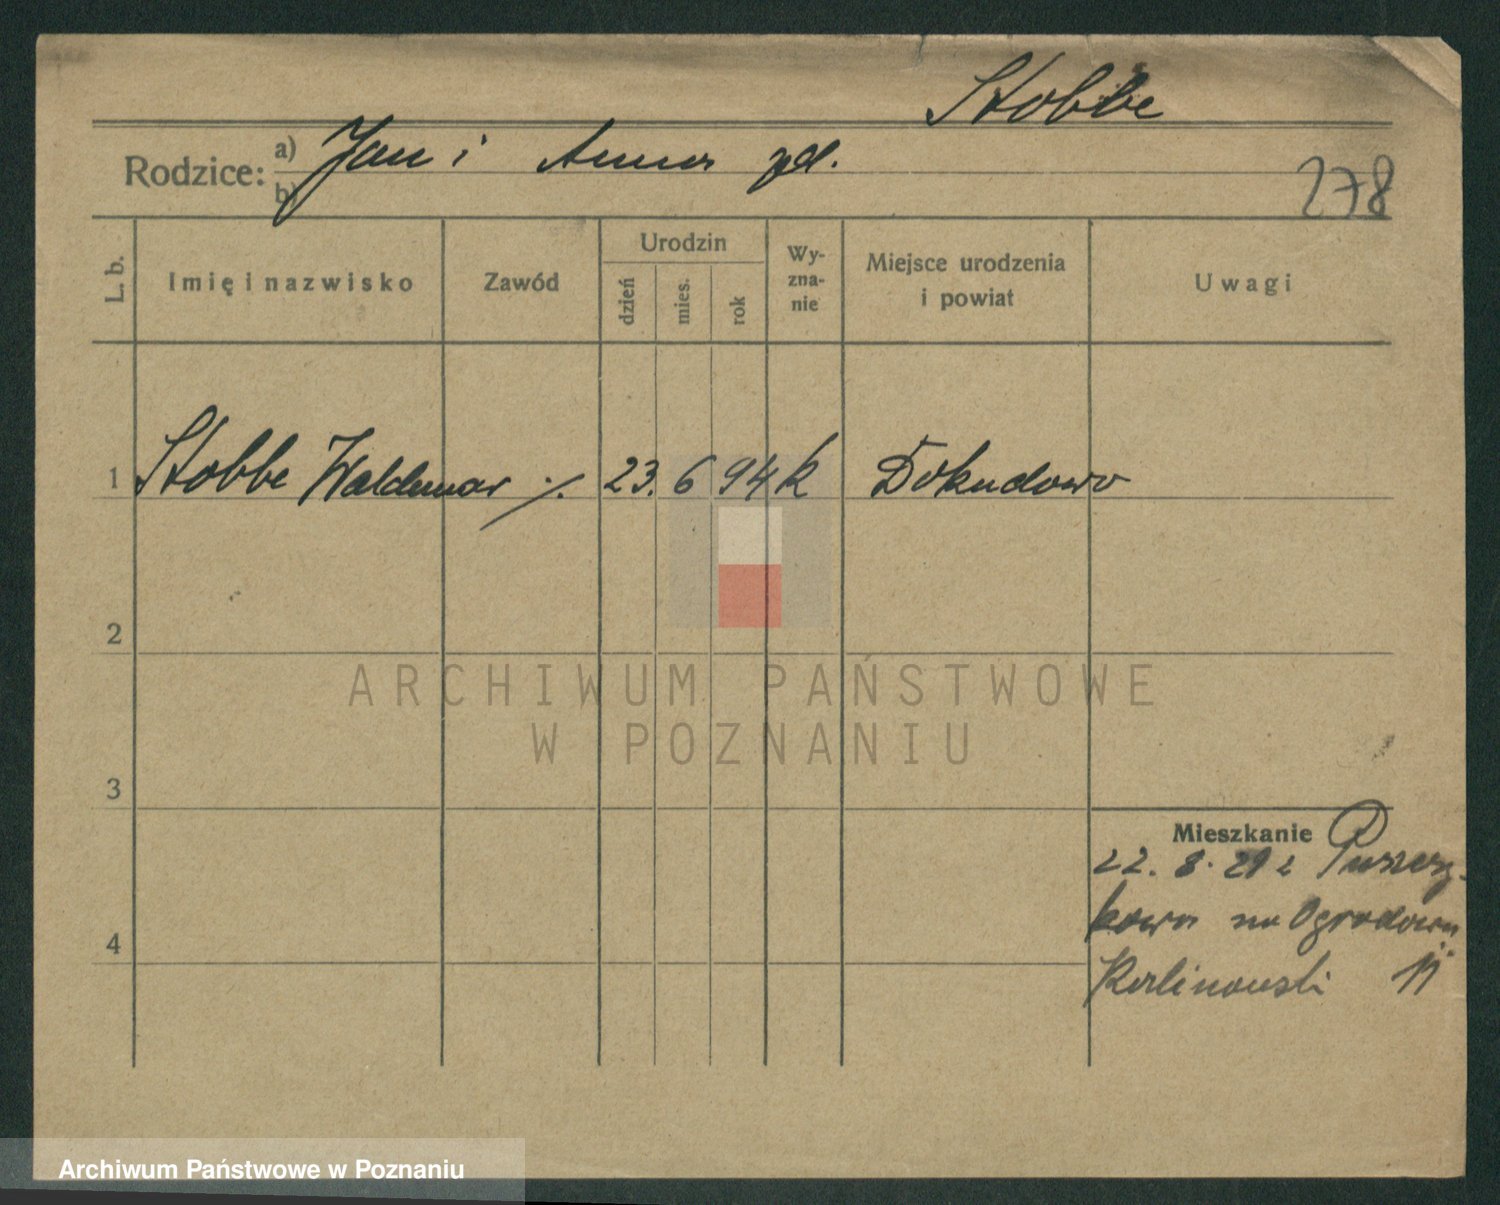 Stobbe
Rodzice: a) Jan i Anna zd.
b)
278
L. b.
Imię i nazwisko
Zawód
Urodzin
dzień
mies.
rok
Wy-
zna-
nie
Miejsce urodzenia
i powiat
Uwagi
1 Stobbe Waldemar ·/. 23. 6 94 k Dokudowo
2
ARCHIWUM PAŃSTWOWE
W POZNANIU
3
Mieszkanie
22. 8. 29 z Puszczy-
kowa na Ogrodową
4
11
Archiwum Państwowe w Poznaniu